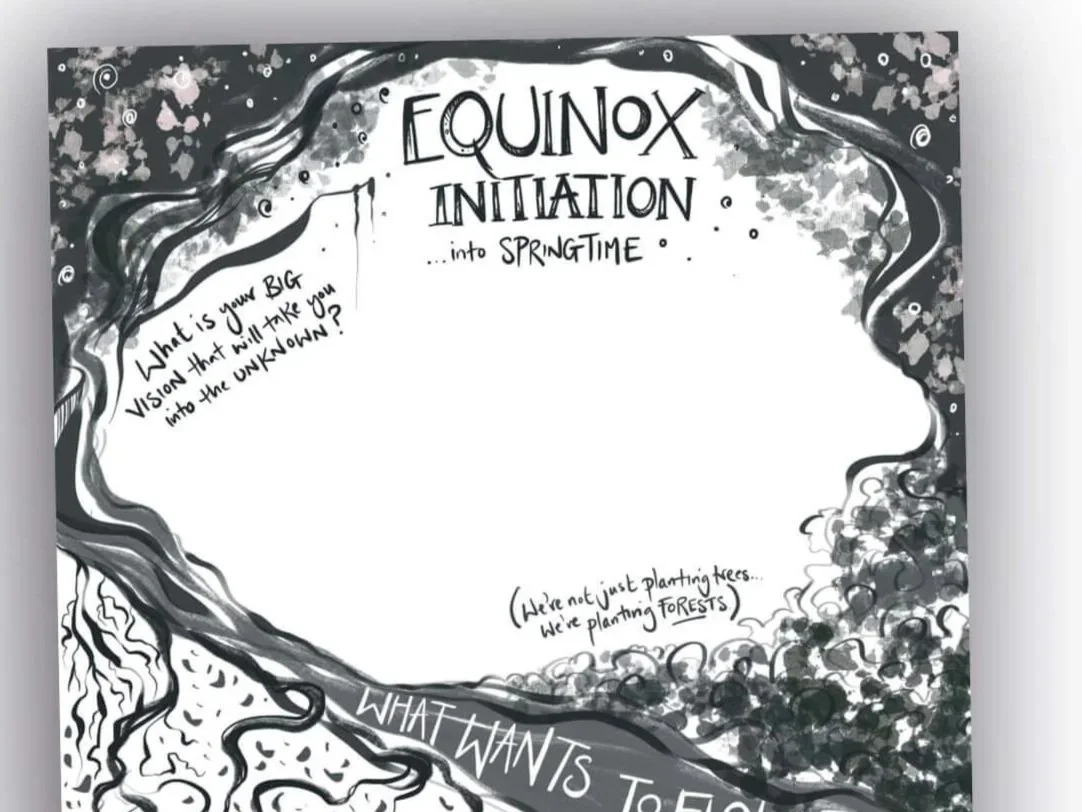 EQUINOX
INITIATION
...into SPRINGTIME
What is your BIG
VISION that will take you
into the UNKNOWN?
(We're not just planting trees...
We're planting FORESTS)
WHAT WANTS TO